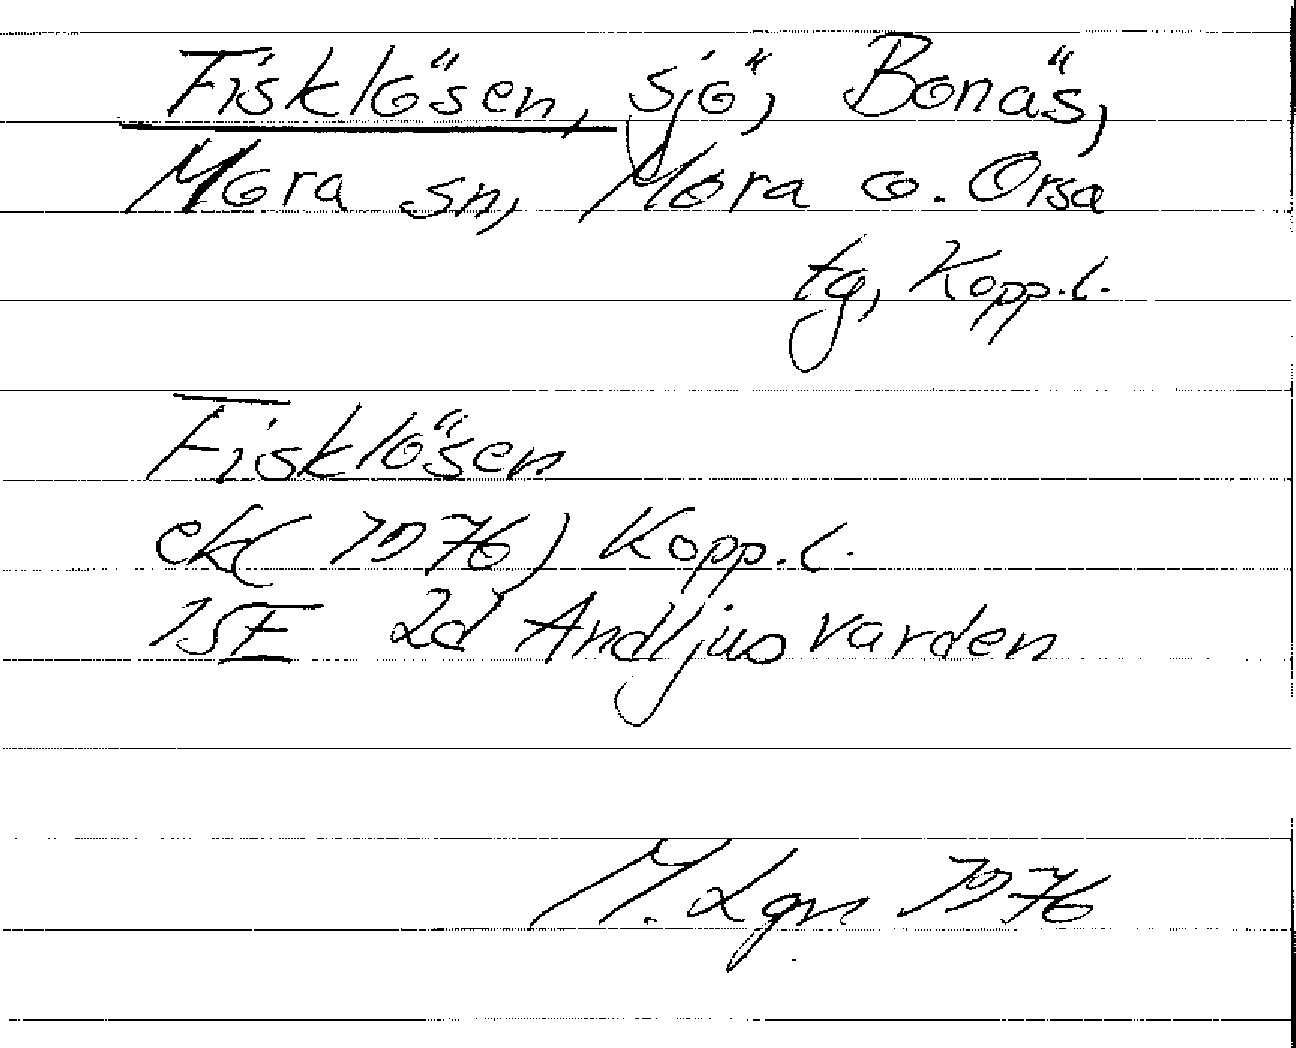 Fisklösen, sjö, Bonäs,
Mora sn, Mora o. Orsa
tg, Kopp.l.
Fisklösen
ek(1976) Kopp.l.
15E 2d Andljusvarden
M. Lgn 1976